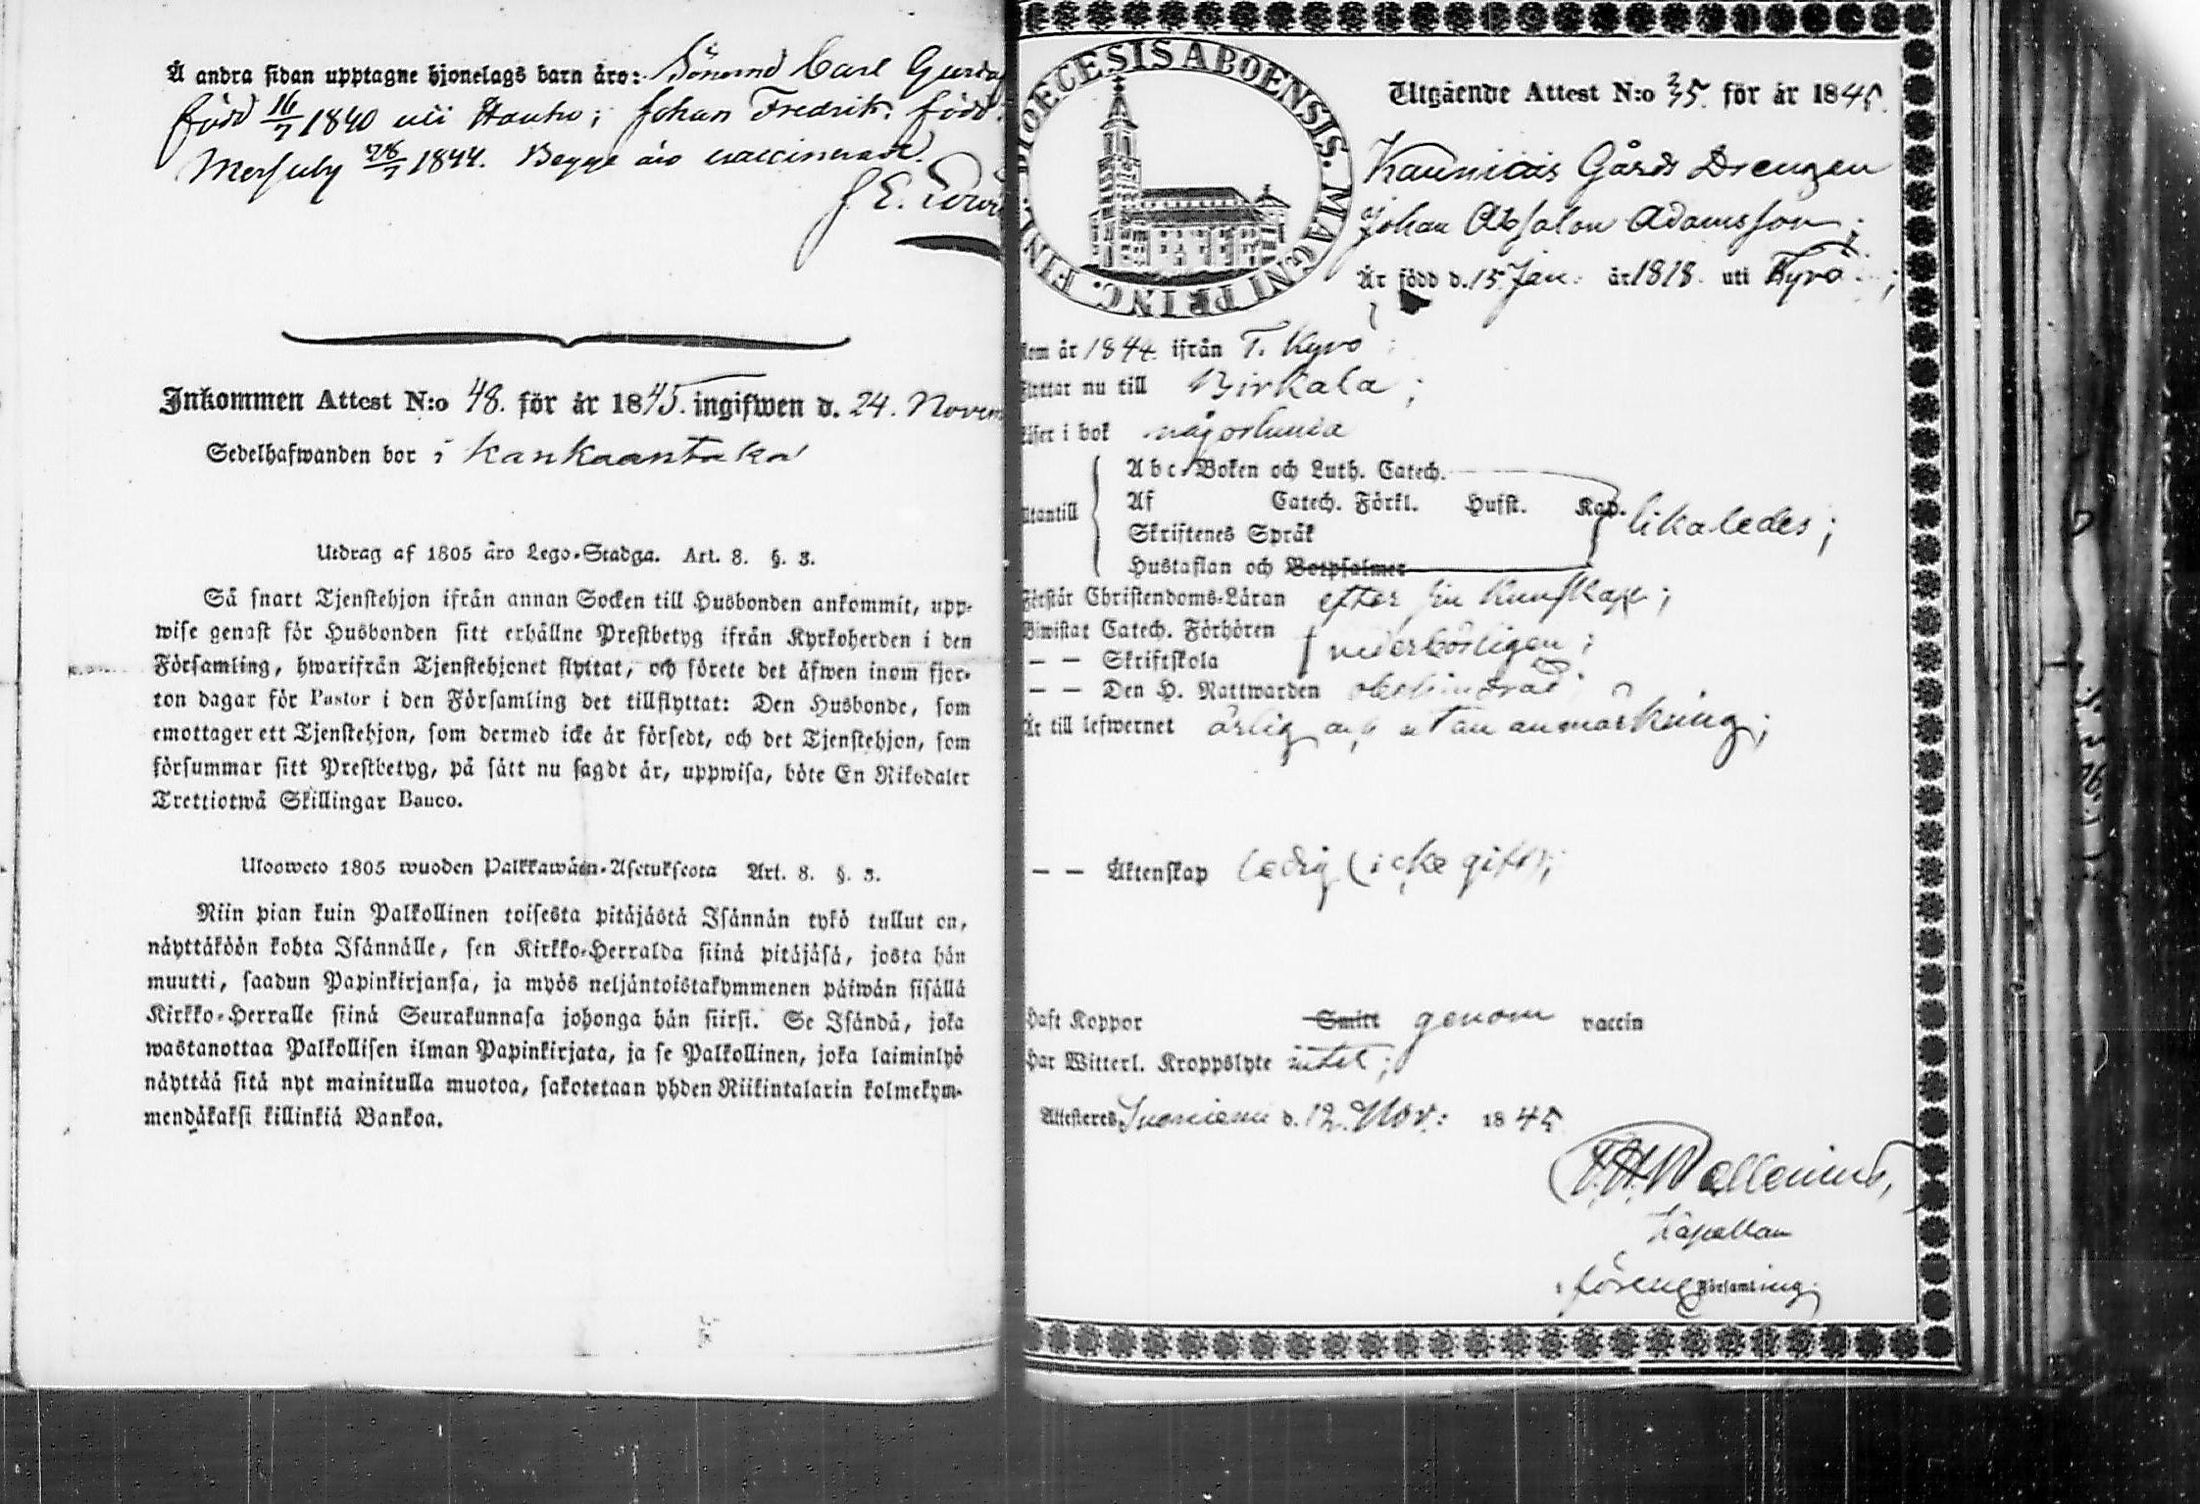 Å andra sidan upptagne hjonelags barn äro: Sönerne Carl Gustaf
född 16/7 1840 uti Hauho; Johan Fredrik, född
28/7 1844. Begge äro vaccinerade.
J. E.
Inkommen Attest N:o 48. för år 1845. ingifwen d. 24. Novem
Sedelhafwanden bor i Kankaantaka
Utdrag af 1805 års Lego-Stadga. Art. 8. §. 3.
Så snart Tjenstehjon ifrån annan Socken till Husbonden ankommit, upp-
wise genast för Husbonden sitt erhållne Prestbetyg ifrån Kyrkoherden i den
Församling, hwarifrån Tjenstehjonet flyttat, och förete det äfwen inom fjor-
ton dagar för Pastor i den Församling det tillflyttat: Den Husbonde, som
emottager ett Tjenstehjon, som dermed icke är försedt, och det Tjenstehjon, som
försummar sitt Prestbetyg, på sätt nu sagdt är, uppwisa, böte En Riksdaler
Trettiotwå Skillingar Banco.
Ulosweto 1805 wuoden Palkkawäen-Asetuksesta Art. 8. §. 3.
Niin pian kuin Palkollinen toisesta pitäjästä Isännän tykö tullut on,
näyttäköön kohta Isännälle, sen Kirkko-Herralda siinä pitäjäsä, josta hän
muutti, saadun Papinkirjansa, ja myös neljäntoistakymmenen päiwän sisällä
Kirkko-Herralle siinä Seurakunnasa johonga hän siirsi. Se Isändä, joka
wastanottaa Palkollisen ilman Papinkirjata, ja se Palkollinen, joka laiminlyö
näyttää sitä nyt mainitulla muotoa, sakotetaan yhden Riikintalarin kolmekym-
mendäkaksi killinkiä Bankoa.
DIOECESIS ABOENSIS. MAGNI PRINC. FINL.
Utgående Attest N:o 35. för år 1845.
Kauniais Gårds Drengen
Johan Absalon Adamsson;
Är född d. 15. Jan: år 1818. uti Kyro;
kom år 1844. ifrån T. Kyro;
flyttar nu till Birkala;
läser i bok någorlunda
Utantill
Abc-Boken och Luth. Catech.
Af Catech. Förkl. Husst. Kap.
Skriftenes Språk
Hustaflan och Botpsalmer
likaledes;
Förstår Christendoms-Läran efter sin kunskap;
Biwistat Catech. Förhören
— — Skriftskola
vederbörligen;
— — Den H. Nattwarden obehindrad;
Är till lefwernet ärlig och utan anmärkning;
— — Äktenskap ledig (icke gift);
Haft Koppor Smitt genom vaccin
Har Witterl. Kroppslyte intet;
Attesteres Suoniemi d. 12. Nov: 1845
Wallenius,
Kapellan
Församling